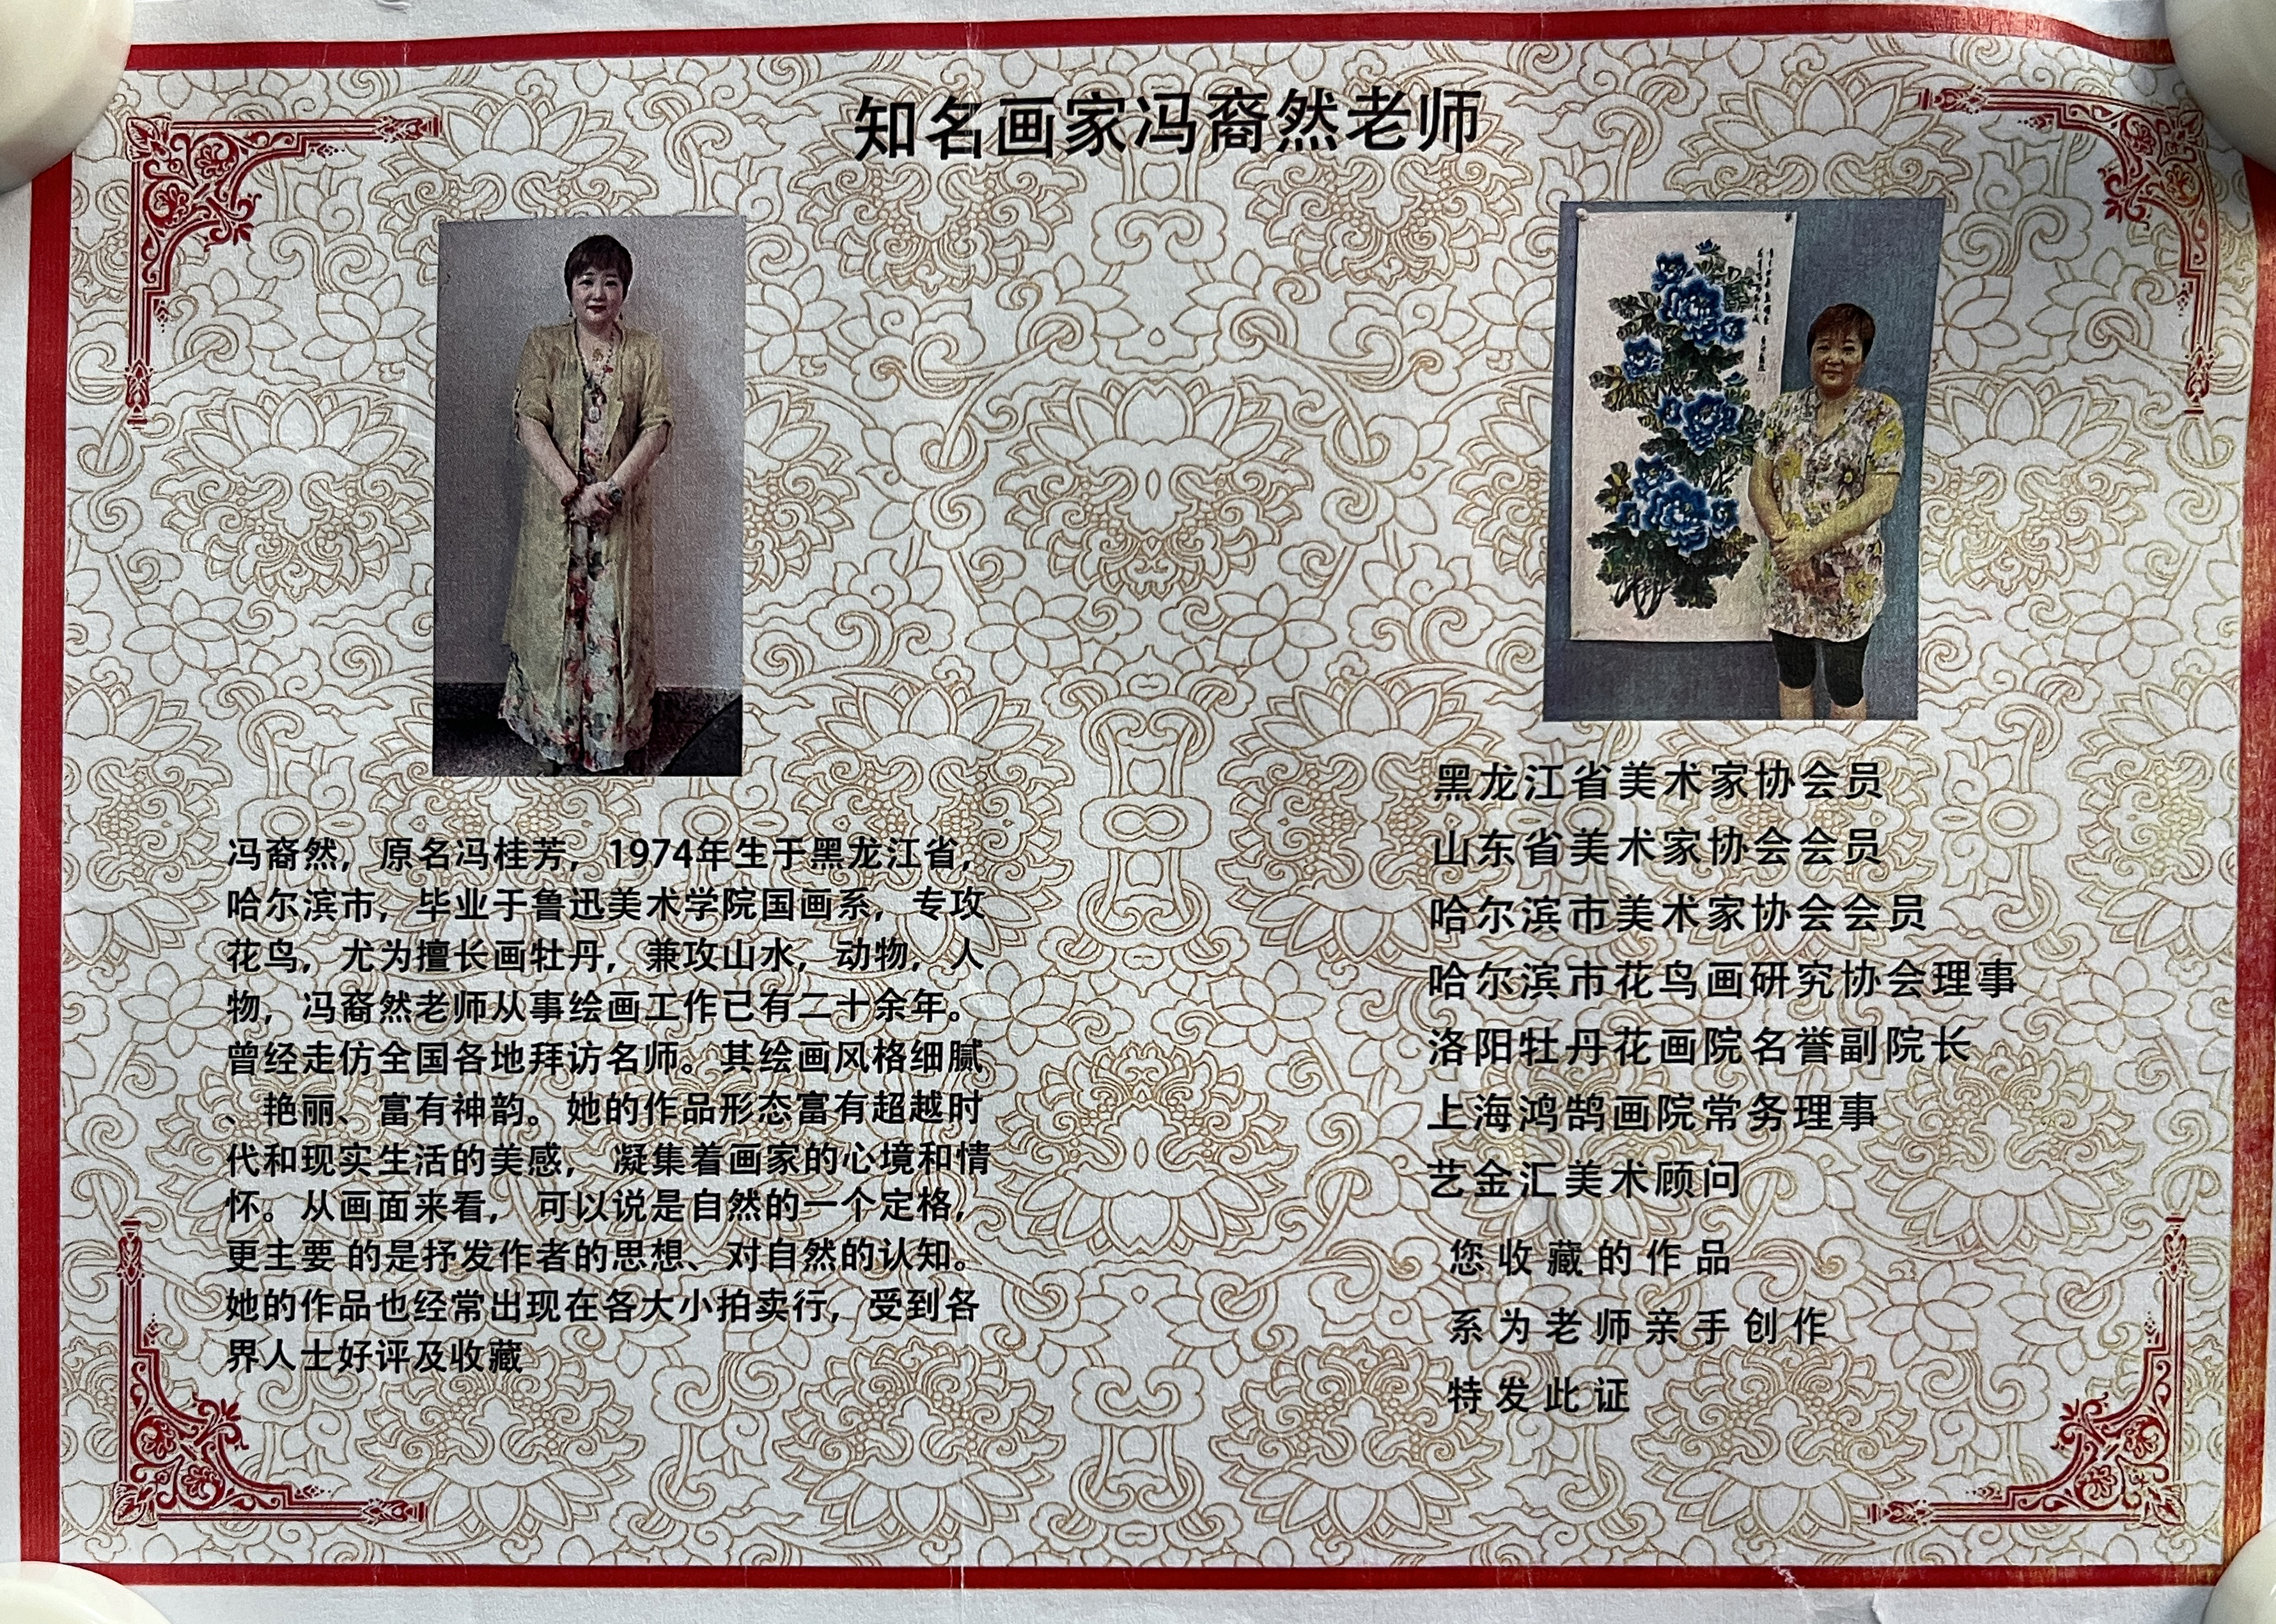 知名画家冯裔然老师
冯裔然，原名冯桂芳，1974年生于黑龙江省，
哈尔滨市，毕业于鲁迅美术学院国画系，专攻
花鸟，尤为擅长画牡丹，兼攻山水，动物，人
物，冯裔然老师从事绘画工作已有二十余年。
曾经走仿全国各地拜访名师。其绘画风格细腻
、艳丽、富有神韵。她的作品形态富有超越时
代和现实生活的美感， 凝集着画家的心境和情
怀。从画面来看， 可以说是自然的一个定格，
更主要 的是抒发作者的思想、对自然的认知。
她的作品也经常出现在各大小拍卖行，受到各
界人士好评及收藏
黑龙江省美术家协会员
山东省美术家协会会员
哈尔滨市美术家协会会员
哈尔滨市花鸟画研究协会理事
洛阳牡丹花画院名誉副院长
上海鸿鹄画院常务理事
艺金汇美术顾问
您收藏的作品
系为老师亲手创作
特发此证